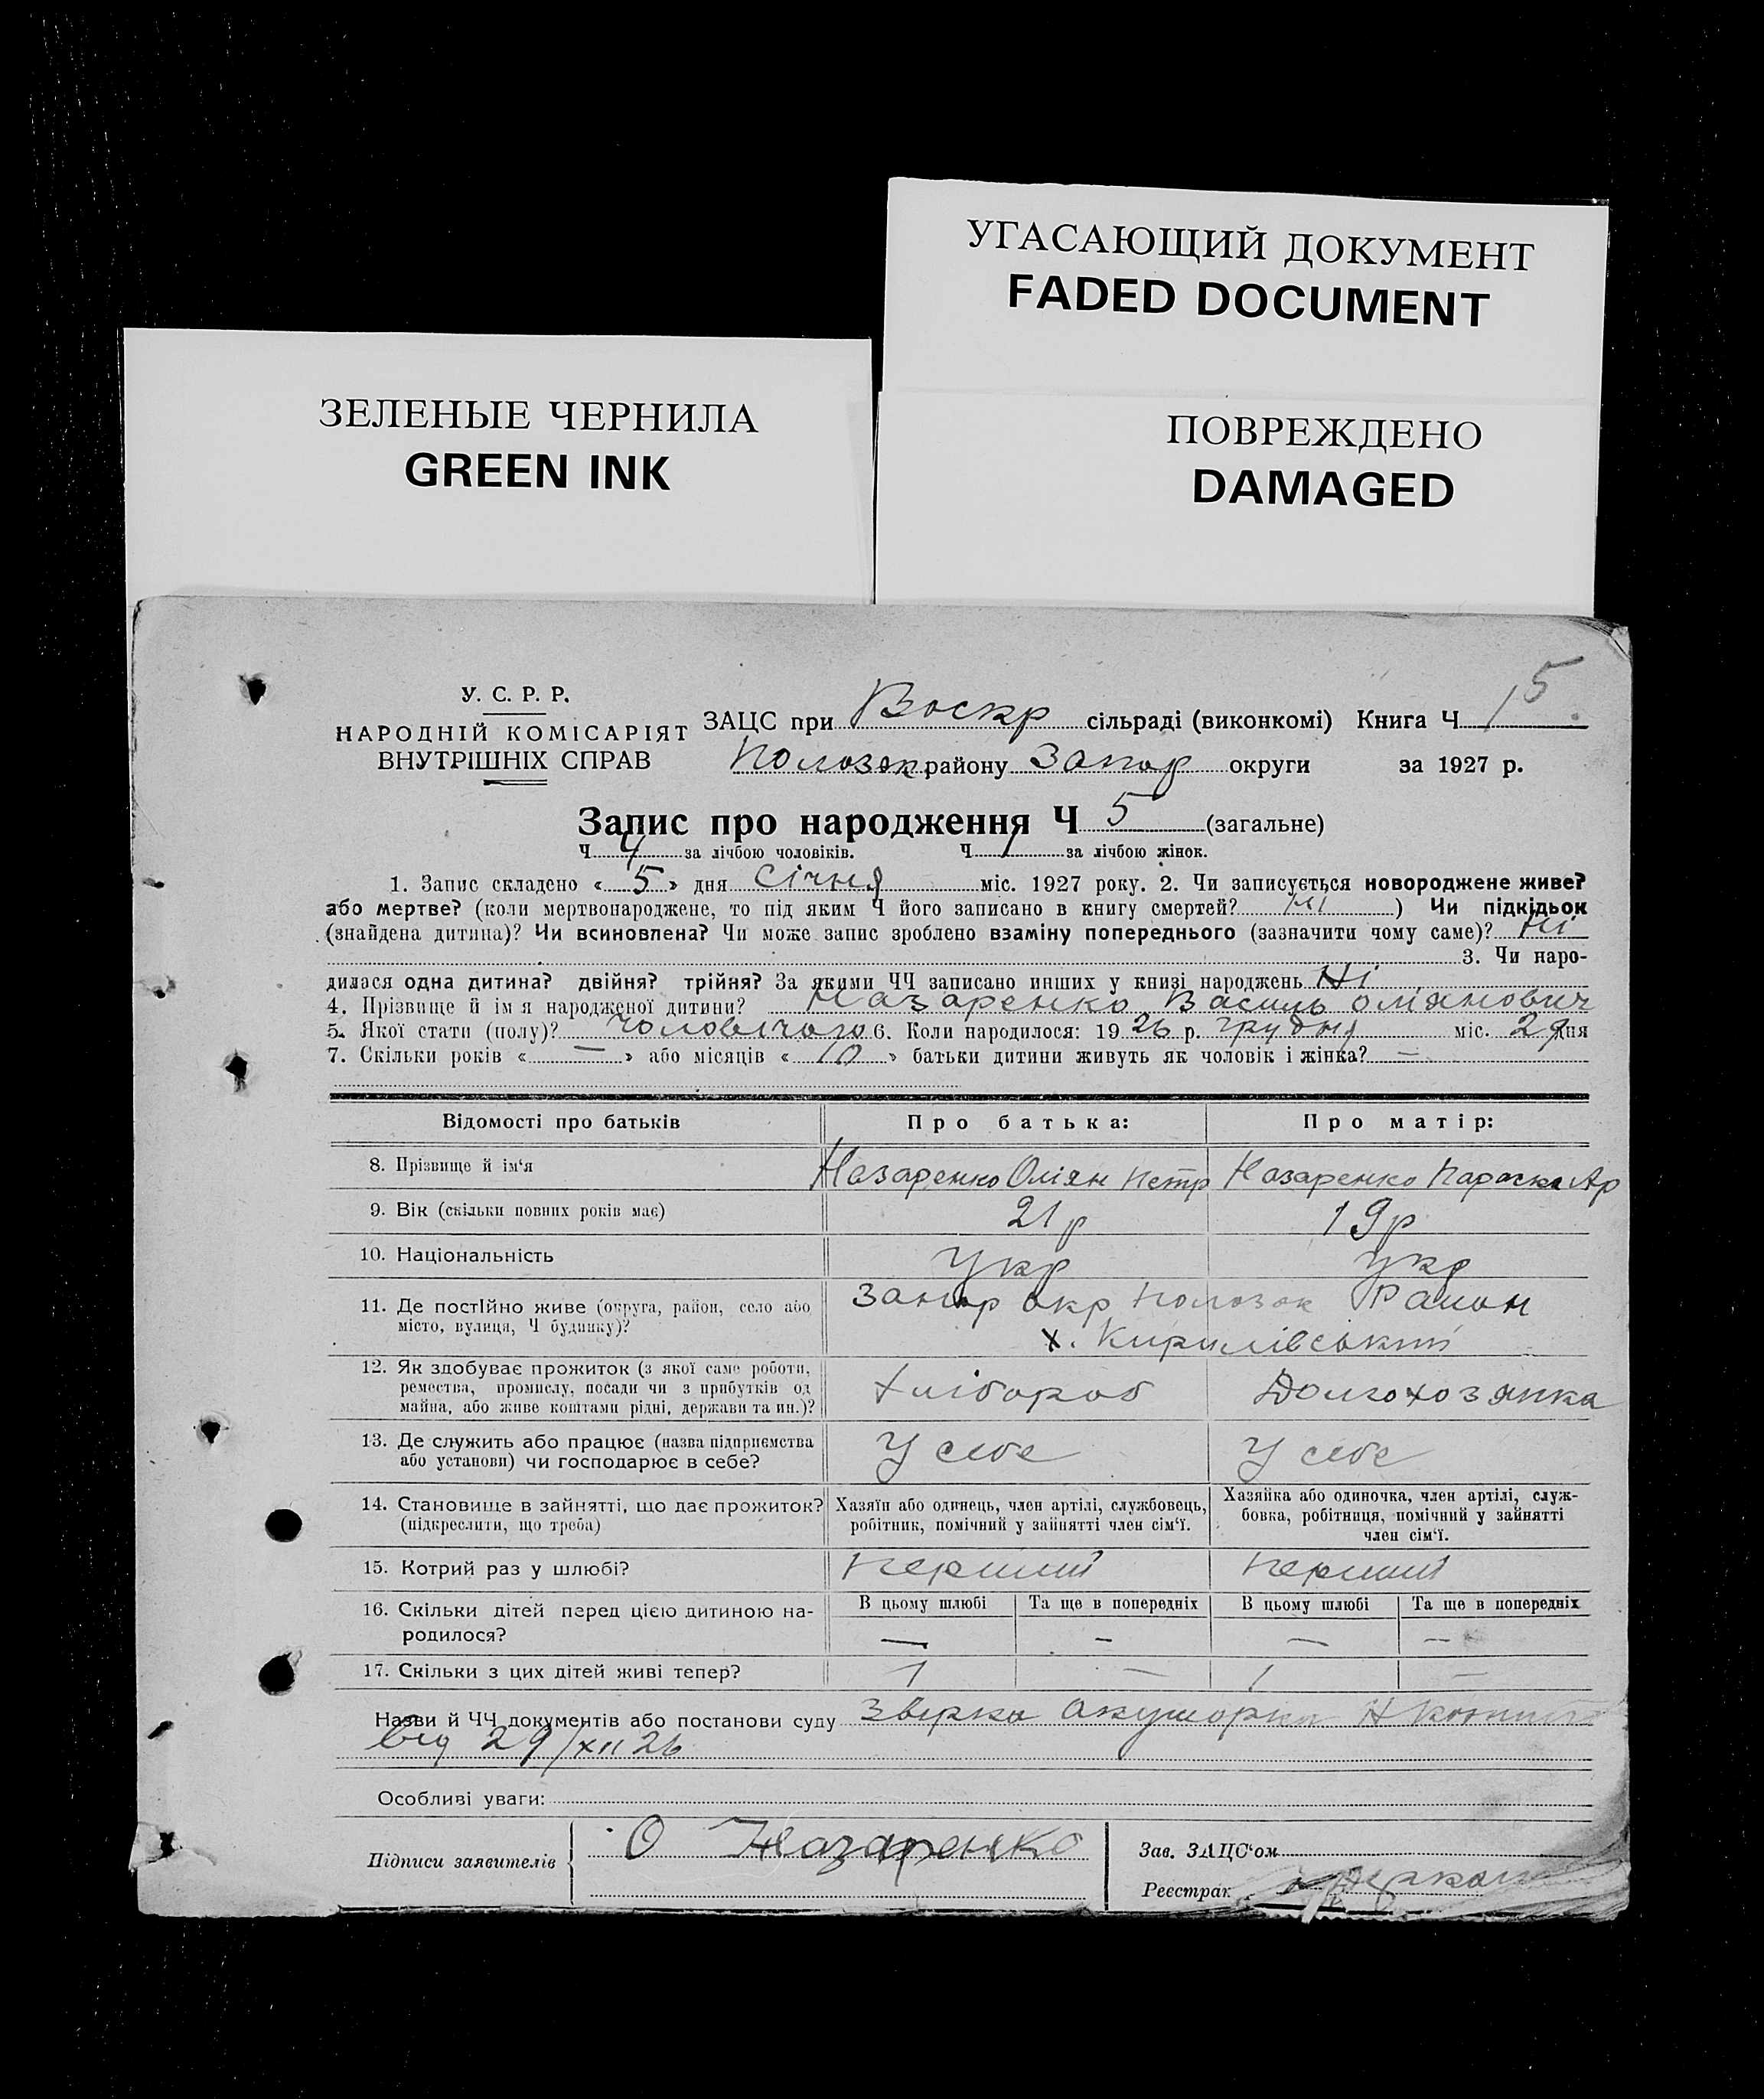 УГАСАЮЩИЙ ДОКУМЕНТ
FADED DOCUMENT
ЗЕЛЕНЫЕ ЧЕРНИЛА
GREEN INK
ПОВРЕЖДЕНО
DAMAGED
У. С. Р. Р.
НАРОДНІЙ КОМІСАРІЯТ
ВНУТРІШНІХ СПРАВ
ЗАЦС при Воскр сільраді (виконкомі) Книга Ч 15
Полозок району Запор округи за 1927 р.
Запис про народження Ч 5 (загальне)
Ч 4 за лічбою чоловіків. Ч 1 за лічбою жінок.
1. Запис складено « 5 » дня січня міс. 1927 року. 2. Чи записується новороджене живе?
або мертве? (коли мертвонароджене, то під яким Ч його записано в книгу смертей? ні ) Чи підкідьок
(знайдена дитина)? Чи всиновлена? Чи може запис зроблено взаміну попереднього (зазначити чому саме)? ні
3. Чи наро-
дилася одна дитина? двійня? трійня? За якими ЧЧ записано инших у книзі народжень Ні
4. Прізвище й ім я народженої дитини? Назаренко Василь Оліянович
5. Якої стати (полу)? чоловічого 6. Коли народилося: 1926 р. грудня міс. 29 дня
7. Скільки років « — » або місяців « 10 » батьки дитини живуть як чоловік і жінка? —
Відомості про батьків Про батька: Про матір:
8. Прізвище й ім'я Назаренко Оліян Петр Назаренко Параска Ар
9. Вік (скільки повних років має) 21 р 19 р
10. Національність Укр Укр
11. Де постійно живе (округа, район, село або Запор окр Полозок Район
місто, вулиця, Ч будинку)? х. Кирилівський
12. Як здобуває прожиток (з якої саме роботи,
ремества, промислу, посади чи з прибутків од Хлібороб Домохозяйка
майна, або живе коштами рідні, держави та ин.)?
13. Де служить або працює (назва підприємства У себе У себе
або установи) чи господарює в себе?
14. Становище в зайнятті, що дає прожиток? Хазяїн або одинець, член артілі, службовець, Хазяйка або одиночка, член артілі, служ-
(підкреслити, що треба) робітник, помічний у зайнятті член сім'ї. бовка, робітниця, помічний у зайнятті
член сім'ї.
15. Котрий раз у шлюбі? Перший Перший
16. Скільки дітей перед цією дитиною на- В цьому шлюбі Та ще в попередніх В цьому шлюбі Та ще в попередніх
родилося? — — — —
17. Скільки з цих дітей живі тепер? 1 — 1 —
Назви й ЧЧ документів або постанови суду Звірка Акушорки
від 29/XII 26
Особливі уваги:
Підписи заявителів О Назаренко
Зав. ЗАЦС'ом
Реєстрак